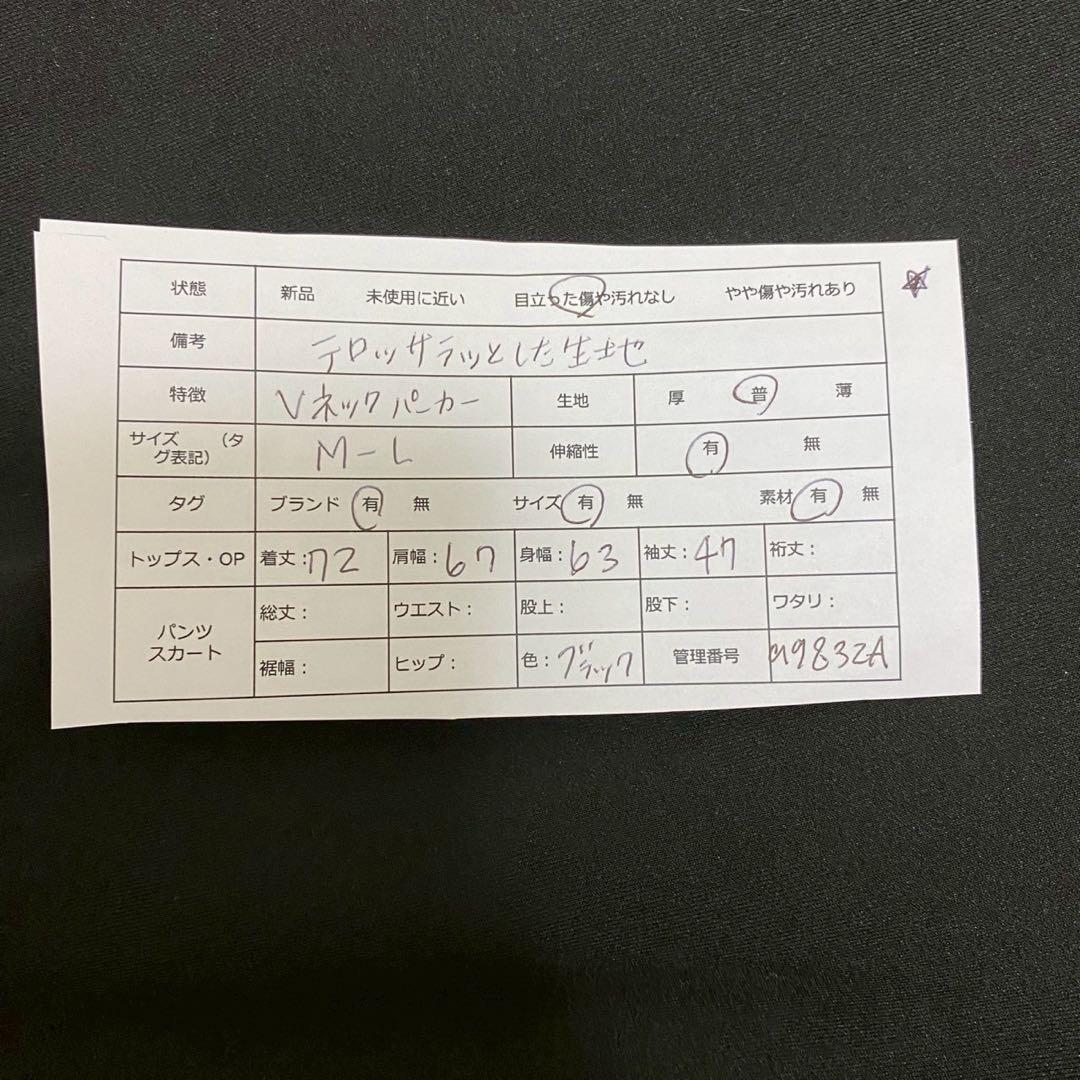 状態 新品 未使用に近い 目立った傷や汚れなし やや傷や汚れあり
備考 テロッサラッとした生地
特徴 Vネックパーカー 生地 厚 普 薄
サイズ （タ
グ表記） M-L 伸縮性 有 無
タグ ブランド 有 無 サイズ 有 無 素材 有 無
トップス・OP 着丈：72 肩幅：67 身幅：63 袖丈：47 裄丈：
パンツ
スカート
総丈： ウエスト： 股上： 股下： ワタリ：
裾幅： ヒップ： 色：ブラック 管理番号